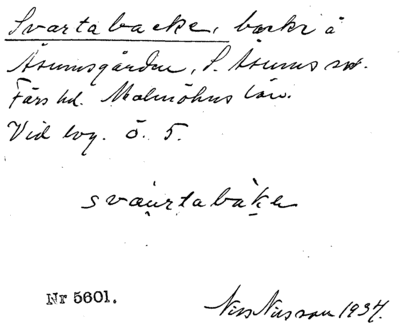 Svartabacke, backe å
Åsumsgården, S. Åsums sn.
Färs hd. Malmöhus län.
Vid byg. ö. 5.
svaurtabake
Nr 5601.
Nils Nilsson 1934.